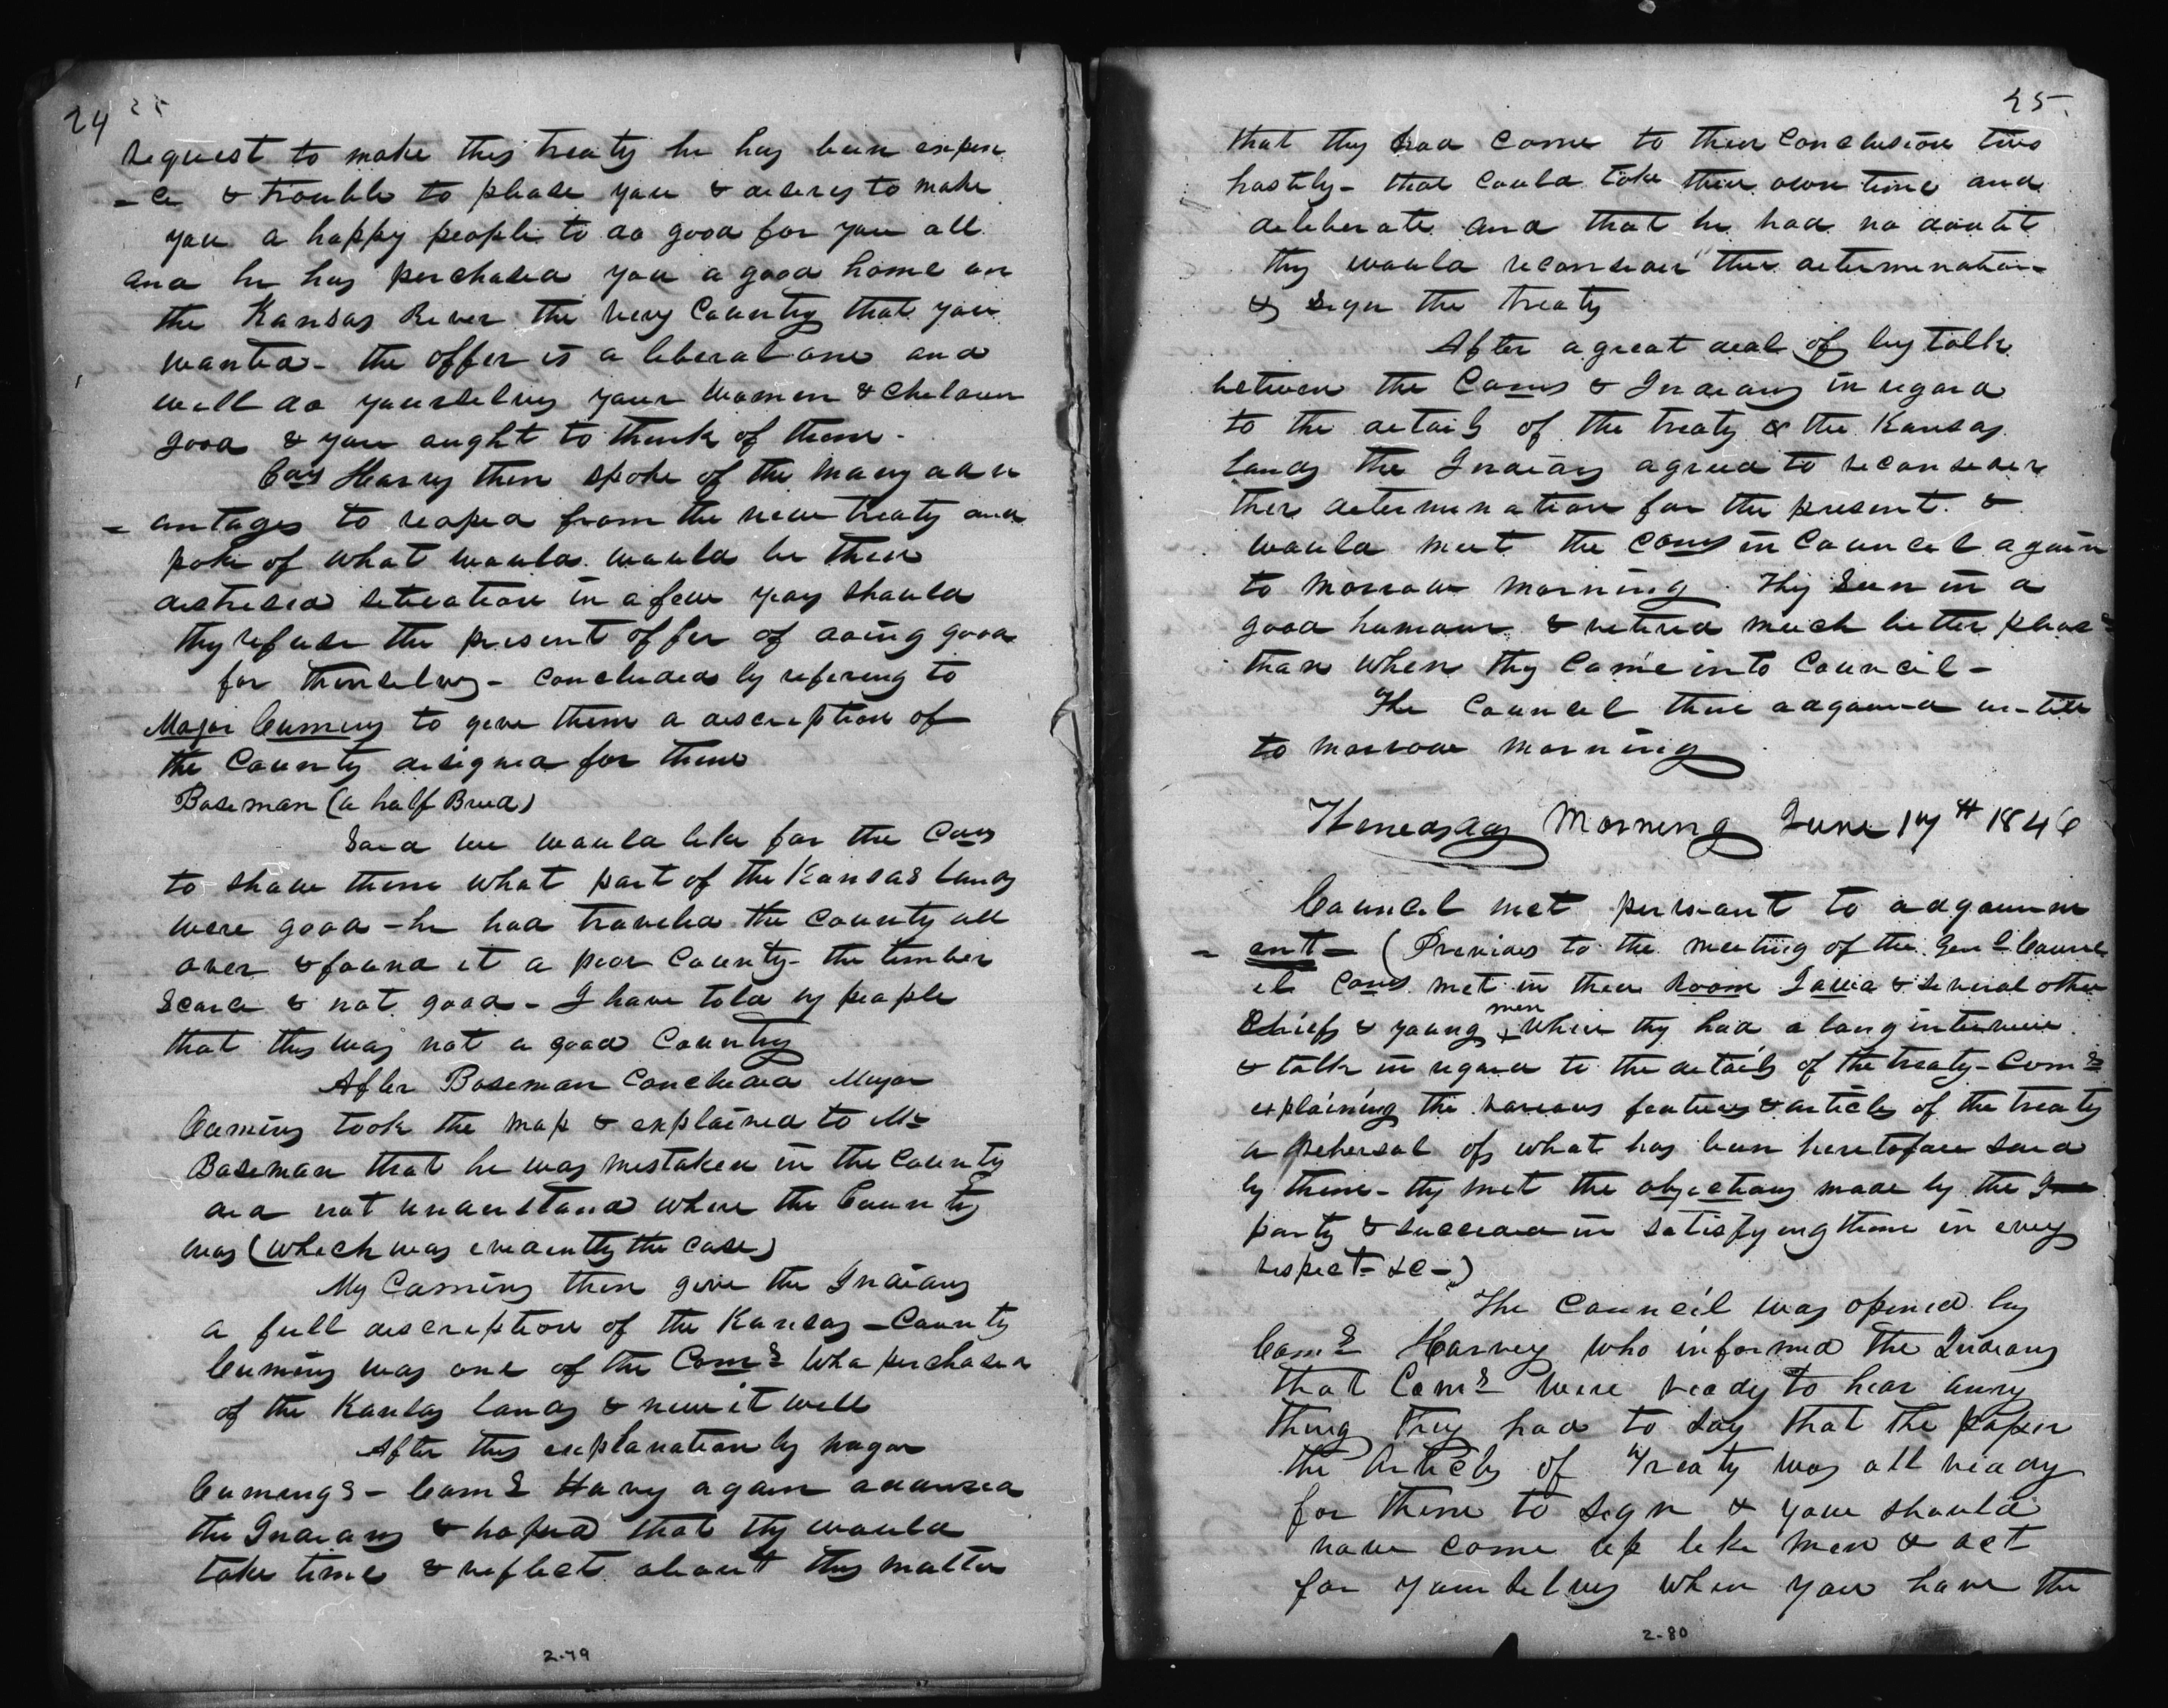 24
request to make this treaty he has been expen
- ce & trouble to please you & desires to make
you a happy people to do good for you all
and he has perchased you a good home on
the Kansas River the very County that you
wanted - the offer is a liberal one and
will do yourselves your women & children
good & you aught to think of them -
Coms Harvey then spoke of the many adv
- antages to reaped from the new treaty and
spoke of what would would be their
distresed situation in a few years should
they refuse the present offer of doing good
for themselves - concluded by refering to
Major Cumings to give them a discription of
the County designed for them
Baseman (a half Breed)
Said we would like for the Coms
to show them what part of the Kansas Lands
were good - he had traveled the county all
over & found it a poor County - the timber
Scarce & not good - I have told my people
that this was not a good Country
After Baseman Concluded Major
Cumings took the map & explained to Mr
Baseman that he was mistaken in the County
did not understand where the County
was (which was evidently the case)
Mj Cumings then give the Indians
a full discription of the Kansas - County
Cumings was one of the Coms who perchased
of the Kansas lands & new it well
After this explanation by major
Cumings - Coms Harvy again addressed
the Indians & hoped that they would
take time & reflect about this matter
2-79
25
that they had come to their conclusion two
hastily - that could take their own time and
deliberate and that he had no doubt
they would reconsider their determination
& sign the treaty
After a great deal of by talk
between the Coms & Indians in regard
to the details of the treaty & the Kansas
lands the Indians agreed to reconsider
their determination for the present &
would meet the Coms in Council again
to morrow morning. They Seem in a
good humour & retired much better pleasd
than when they came into Council -
The Council then adgourned un-till
to morrow morning
Wenedsday Morning June 17th 1846
Council met persuant to adgournm
- ent - (Previous to the meeting of the Genl Counc
il Coms met in their Room & several other
Chiefs & young men where they had a long interview
& talk in regard to the details of the treaty - Coms
explaining the various features & articles of the treaty
a rehersal of what has been heretofore said
by them - they met the objections made by the
party & succeded in satisfying them in every
respect - &c -)
The Council was opened by
Coms Harvey who informed the Indians
that Coms were ready to hear any
thing they had to say that the paper
the Articles of Treaty was all ready
for them to sign & you should
now come up like men & act
for yourselves when you have the
2-80